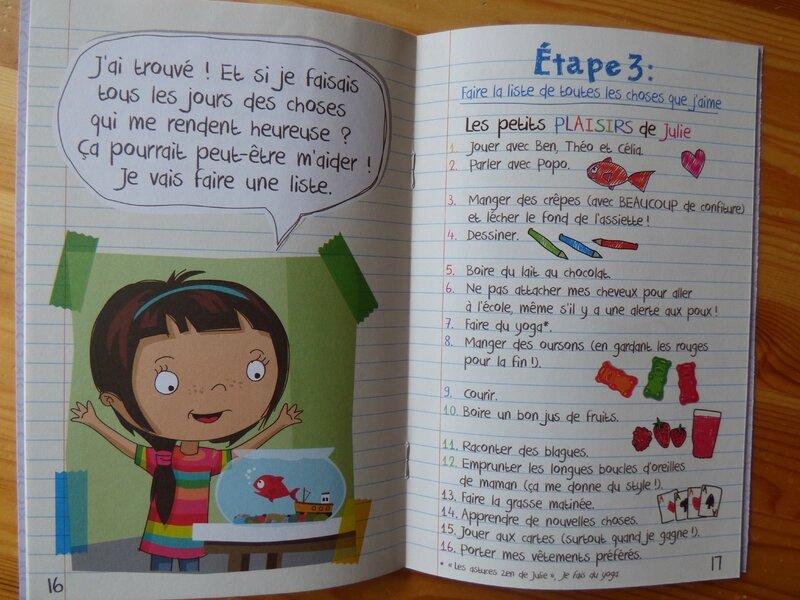 J'ai trouvé ! Et si je faisais
tous les jours des choses
qui me rendent heureuse ?
Ça pourrait peut-être m'aider !
Je vais faire une liste.
16
Étape 3 :
Faire la liste de toutes les choses que j'aime
Les petits PLAISIRS de Julie
1. Jouer avec Ben, Théo et Célia.
2. Parler avec Popo.
3. Manger des crêpes (avec BEAUCOUP de confiture)
et lécher le fond de l'assiette !
4. Dessiner.
5. Boire du lait au chocolat.
6. Ne pas attacher mes cheveux pour aller
à l'école, même s'il y a une alerte aux poux !
7. Faire du yoga*.
8. Manger des oursons (en gardant les rouges
pour la fin !).
9. Courir.
10. Boire un bon jus de fruits.
11. Raconter des blagues.
12. Emprunter les longues boucles d'oreilles
de maman (ça me donne du style !).
13. Faire la grasse matinée.
14. Apprendre de nouvelles choses.
15. Jouer aux cartes (surtout quand je gagne !).
16. Porter mes vêtements préférés.
* « Les astuces zen de Julie », Je fais du yoga
17